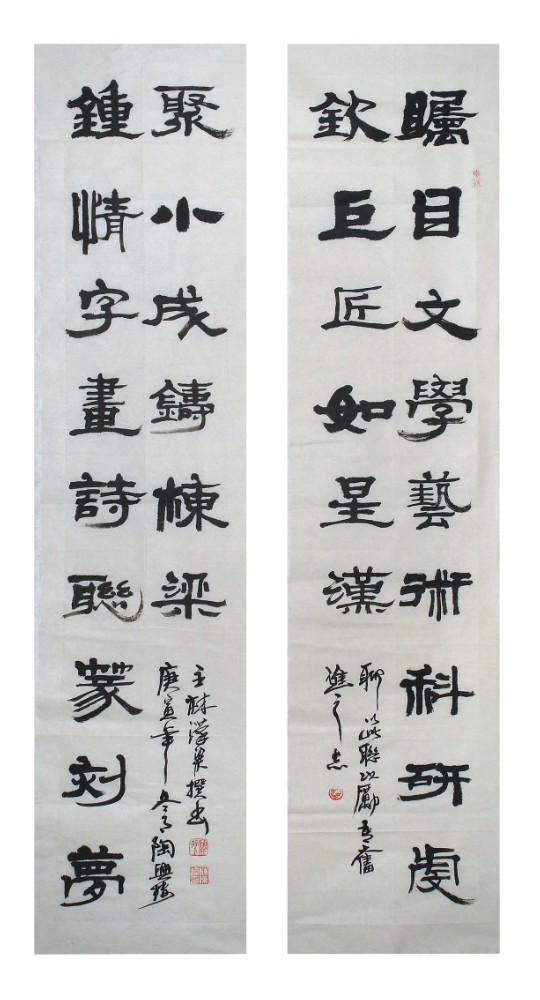 矚目文學藝術科研虔
欽巨匠如星漢
聊以此聯以勵吾奮
進之志
鍾情字畫詩聯篆刻夢
聚小成鑄棟梁
撰書
庚寅年冬月陶興